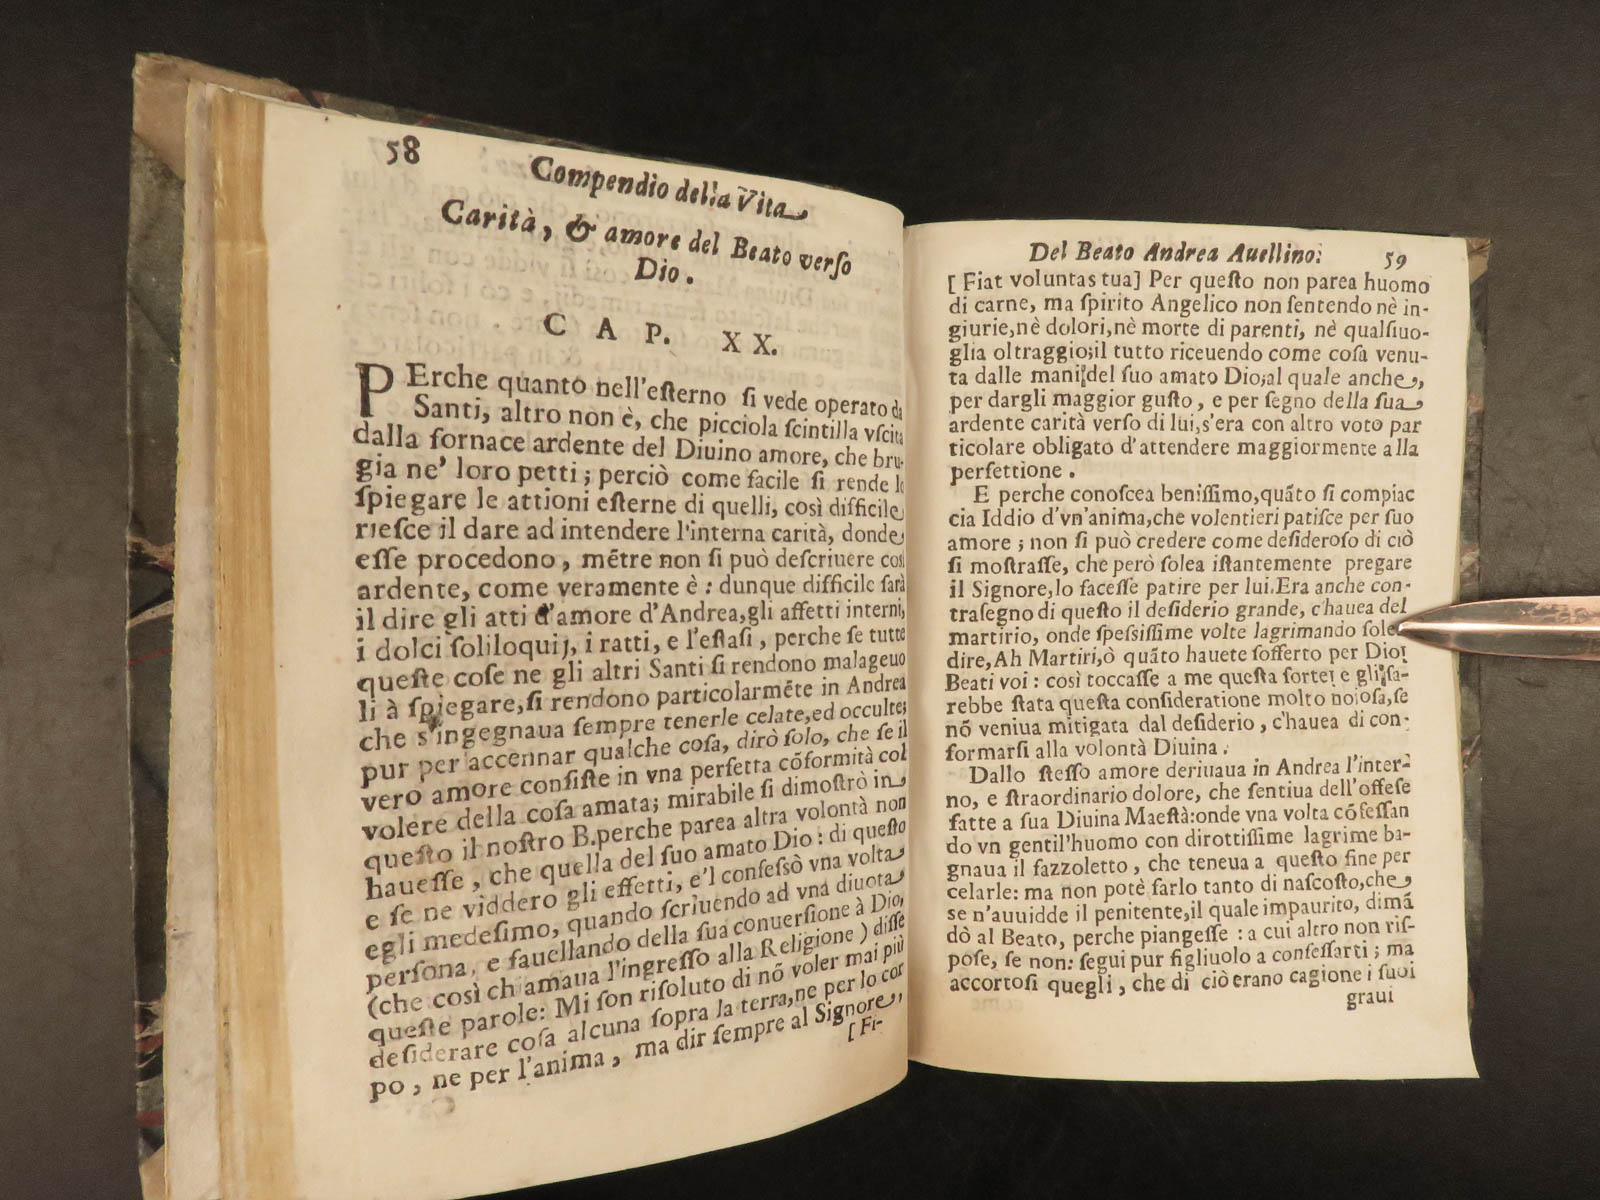 58
Compendio della Vita
Carità, & amore del Beato verſo
Dio.
CAP. XX.
PErche quanto nell'eſterno ſi vede operato da
Santi, altro non è, che picciola ſcintilla vſcita
dalla fornace ardente del Diuino amore, che bru-
gia ne' loro petti; perciò come facile ſi rende lo
ſpiegare le attioni eſterne di quelli, così difficile
rieſce il dare ad intendere l'interna carità, donde
eſſe procedono, mētre non ſi può deſcriuere così
ardente, come veramente è: dunque difficile ſarà
il dire gli atti d'amore d'Andrea, gli affetti interni,
i dolci ſoliloquij, i ratti, e l'eſtaſi, perche ſe tutte
queſte coſe ne gli altri Santi ſi rendono malageuo
li à ſpiegare, ſi rendono particolarmēte in Andrea
che s'ingegnaua ſempre tenerle celate, ed occulte;
pur per accennar qualche coſa, dirò ſolo, che ſe il
vero amore conſiſte in vna perfetta cōformità col
volere della coſa amata; mirabile ſi dimoſtrò in
queſto il noſtro B. perche parea altra volontà non
haueſſe, che quella del ſuo amato Dio: di queſto
e ſe ne viddero gli effetti, e'l confeſsò vna volta
egli medeſimo, quando ſcriuendo ad vna diuota
perſona, e fauellando della ſua conuerſione à Dio,
(che così chiamaua l'ingreſſo alla Religione) diſſe
queſte parole: Mi ſon riſoluto di nō voler mai più
deſiderare coſa alcuna ſopra la terra, ne per lo cor
po, ne per l'anima, ma dir ſempre al Signore,
[Fi-
Del Beato Andrea Auellino. 59
[Fiat voluntas tua] Per queſto non parea huomo
di carne, ma ſpirito Angelico non ſentendo nè in-
giurie, nè dolori, nè morte di parenti, nè qualſiuo-
glia oltraggio; il tutto riceuendo come coſa venu-
ta dalle mani del ſuo amato Dio; al quale anche,
per dargli maggior guſto, e per ſegno della ſua
ardente carità verſo di lui, s'era con altro voto par
ticolare obligato d'attendere maggiormente alla
perfettione.
E perche conoſcea beniſſimo, quāto ſi compiac
cia Iddio d'vn'anima, che volentieri patiſce per ſuo
amore; non ſi può credere come deſideroſo di ciò
ſi moſtraſſe, che però ſolea iſtantemente pregare
il Signore, lo faceſſe patire per lui. Era anche con-
traſegno di queſto il deſiderio grande, c'hauea del
martirio, onde ſpeſſiſſime volte lagrimando ſolea
dire, Ah Martiri, ò quāto hauete ſofferto per Dio!
Beati voi: così toccaſſe a me queſta ſorte! e gli ſa-
rebbe ſtata queſta conſideratione molto noioſa, ſe
nō veniua mitigata dal deſiderio, c'hauea di con-
formarſi alla volontà Diuina.
Dallo ſteſſo amore deriuaua in Andrea l'inter-
no, e ſtraordinario dolore, che ſentiua dell'offeſe
fatte a ſua Diuina Maeſtà: onde vna volta cōfeſſan
do vn gentil'huomo con dirottiſſime lagrime ba-
gnaua il fazzoletto, che teneua a queſto fine per
celarle: ma non potè farlo tanto di naſcoſto, che
se n'auuidde il penitente, il quale impaurito, dimā
dò al Beato, perche piangeſſe: a cui altro non riſ-
poſe, ſe non: ſegui pur figliuolo a confeſſarti; ma
accortoſi quegli, che di ciò erano cagione i ſuoi
graui